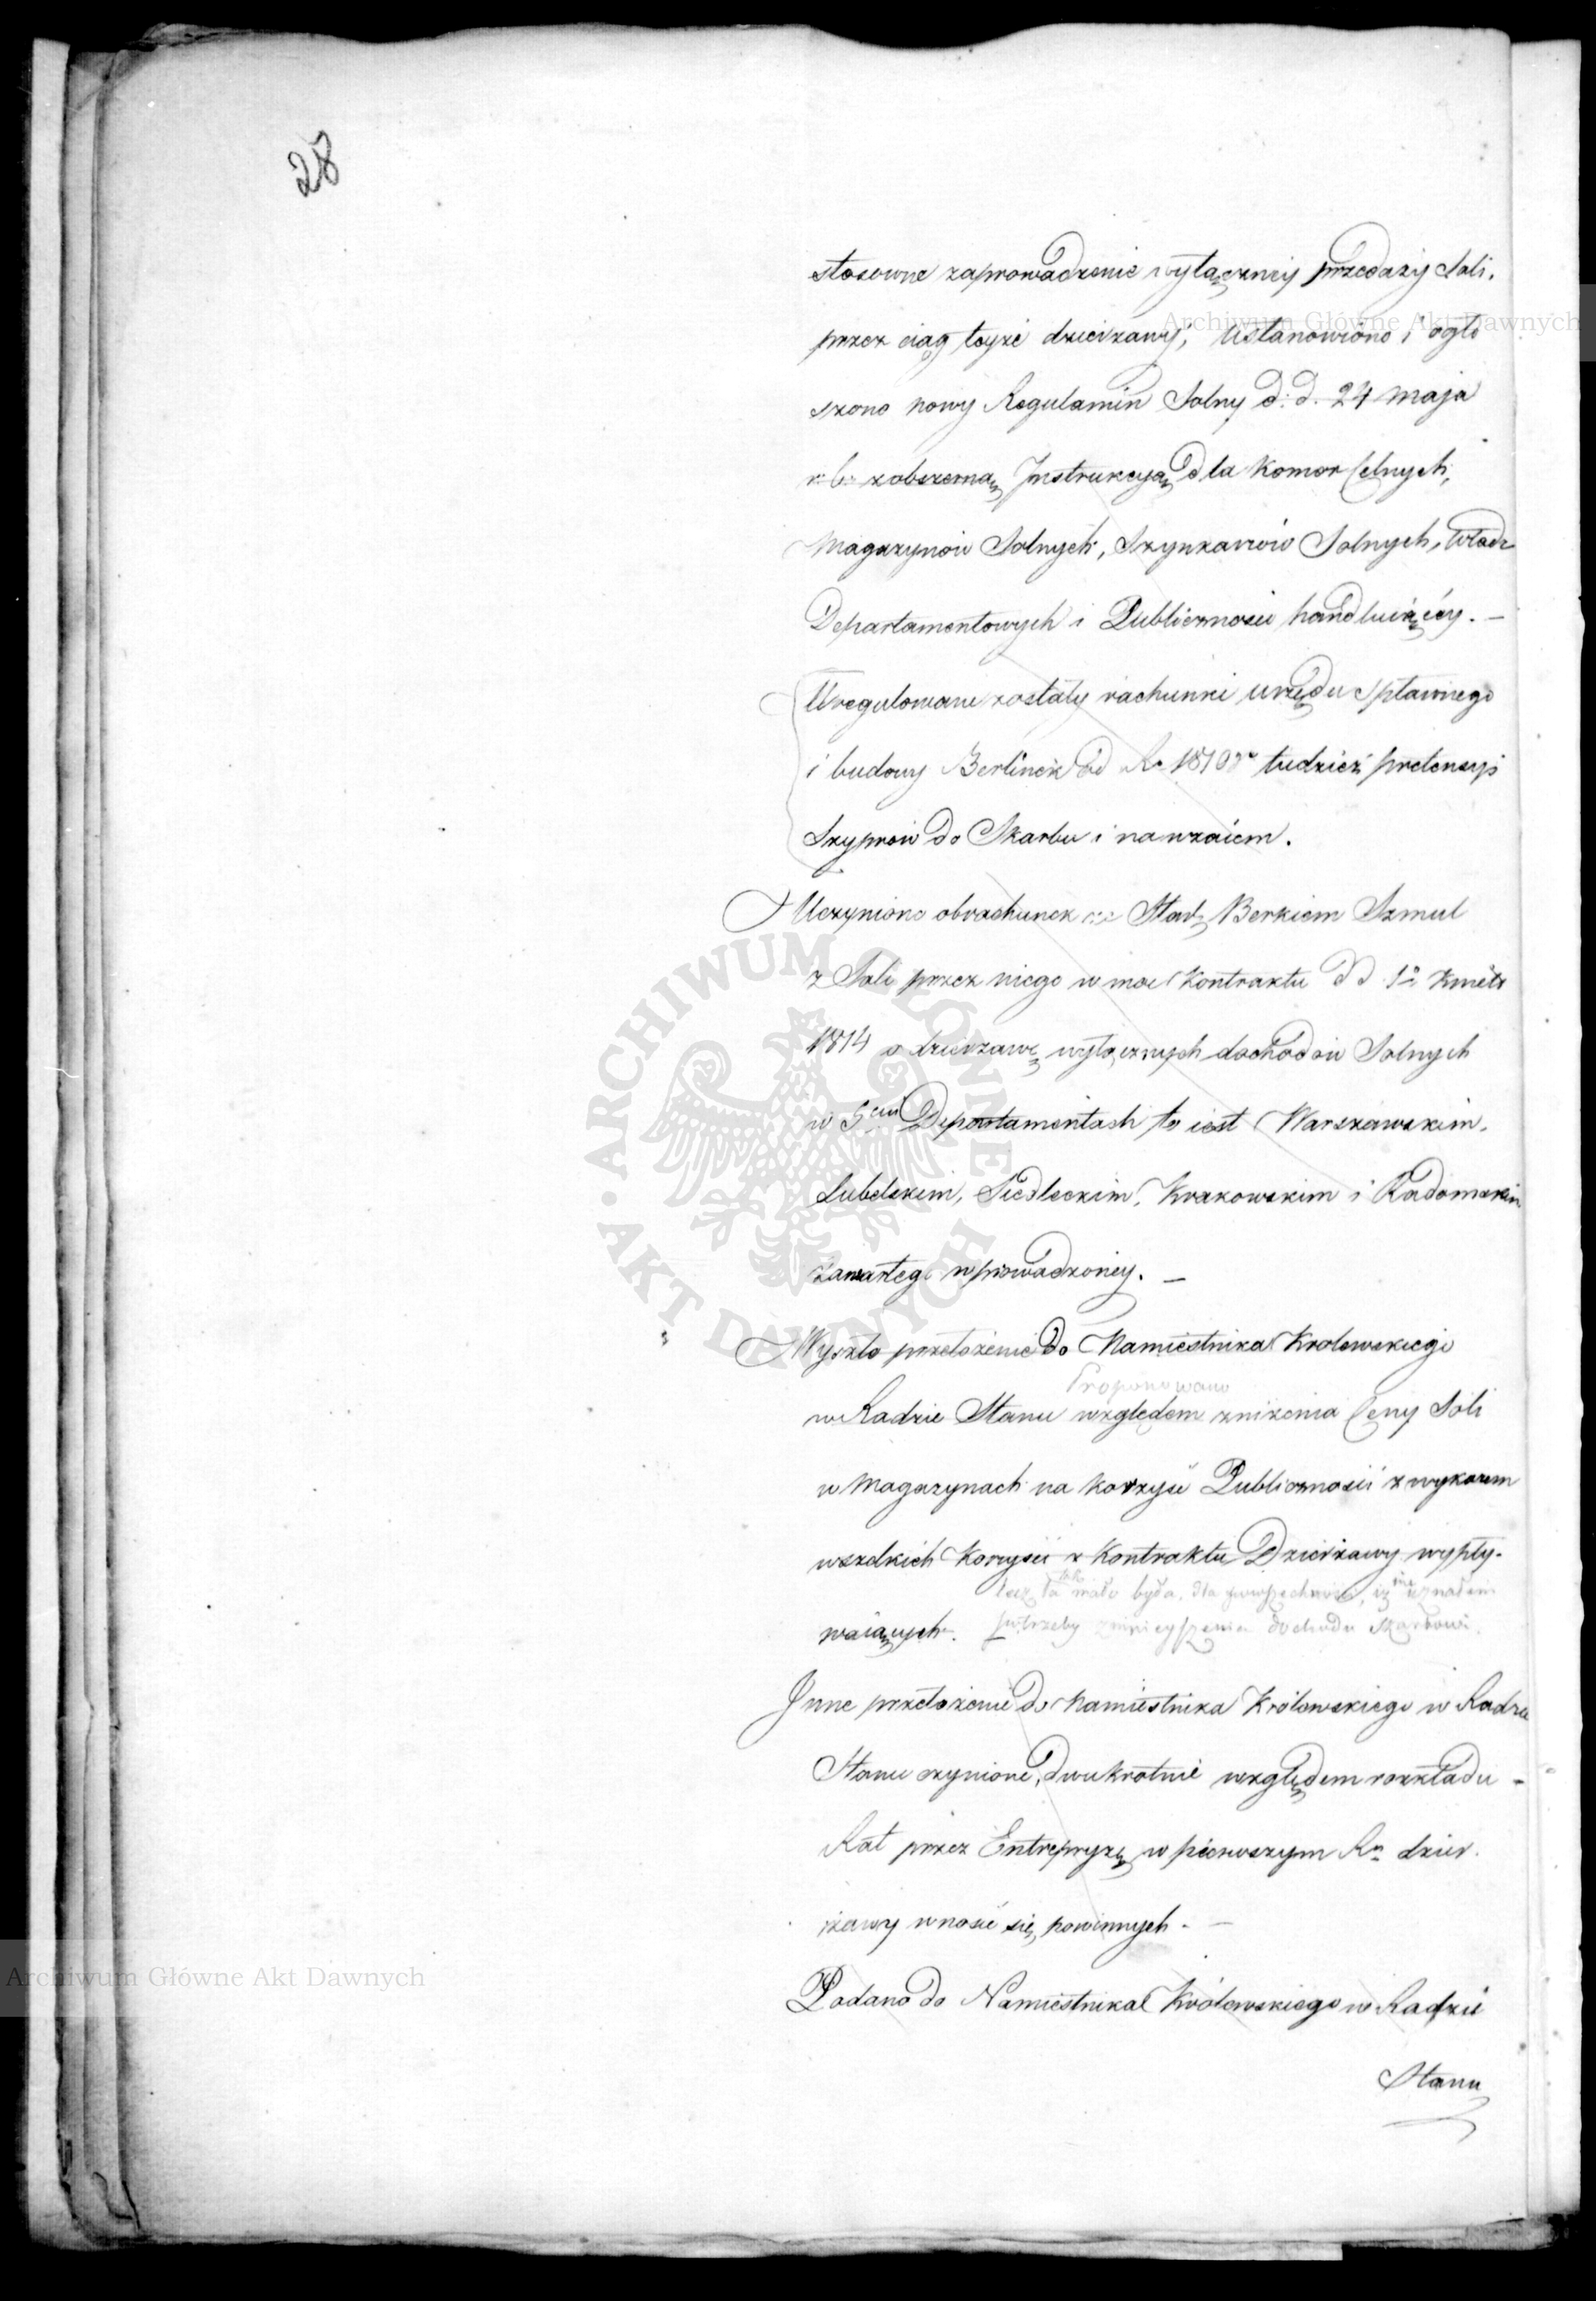 28
stosowne zaprowadzenie wyłączney przedaży Soli,
przez ciąg teyże dzierzawy; Ustanowiono i ogło
szono nowy Regulamin Solny d: d. 24 Maja
r. b. z obszerną Instrukcyą dla Komor Celnych,
Magazynów Solnych, Szynkarzów Solnych, Władz
Departamentowych i Publicznosci handluiącey. —
Uregulowane zostały rachunki urzędu Spławnego
i budowy Berlinek od Ru 1810go tudzież pretensyi
Szyprów do Skarbu i nawzaiem.
Uczyniono obrachunek ze Star. Berkiem Szmul
z Soli przez niego w moc Kontraktu d d 1o Kwiet
1814 o dzierzawę wyłącznych dochodów Solnych
w 5ciu Departamentach to iest Warszawskim,
Lubelskim, Siedleckim, Krakowskim i Radomskim
zawartego wprowadzoney. —
Wyszło przełożenie do Namiestnika Krolewskiego
Proponowano
w Radzie Stanu względem zniżenia Ceny Soli
w Magazynach na korzyść Publicznosci z wykazem
wszelkich korzyści z Kontraktu Dzierżawy wypły-
lecz ta mało była, dla powszechności, iż nie uznałem
waiących. potrzeby zmnieyszenia dochodu Skarbowi.
Inne przełożenie do Namiestnika Królewskiego w Radzie
Stanu czynione, dwukrotnie względem rozkładu
Rat przez Entrepryzę w pierwszym Ru dzier
żawy wnosić się powinnych. —
Podano do Namiestnika Królewskiego w Radzie
Stanu
Archiwum Główne Akt Dawnych
Archiwum Główne Akt Dawnych
ARCHIWUM GŁÓWNE AKT DAWNYCH